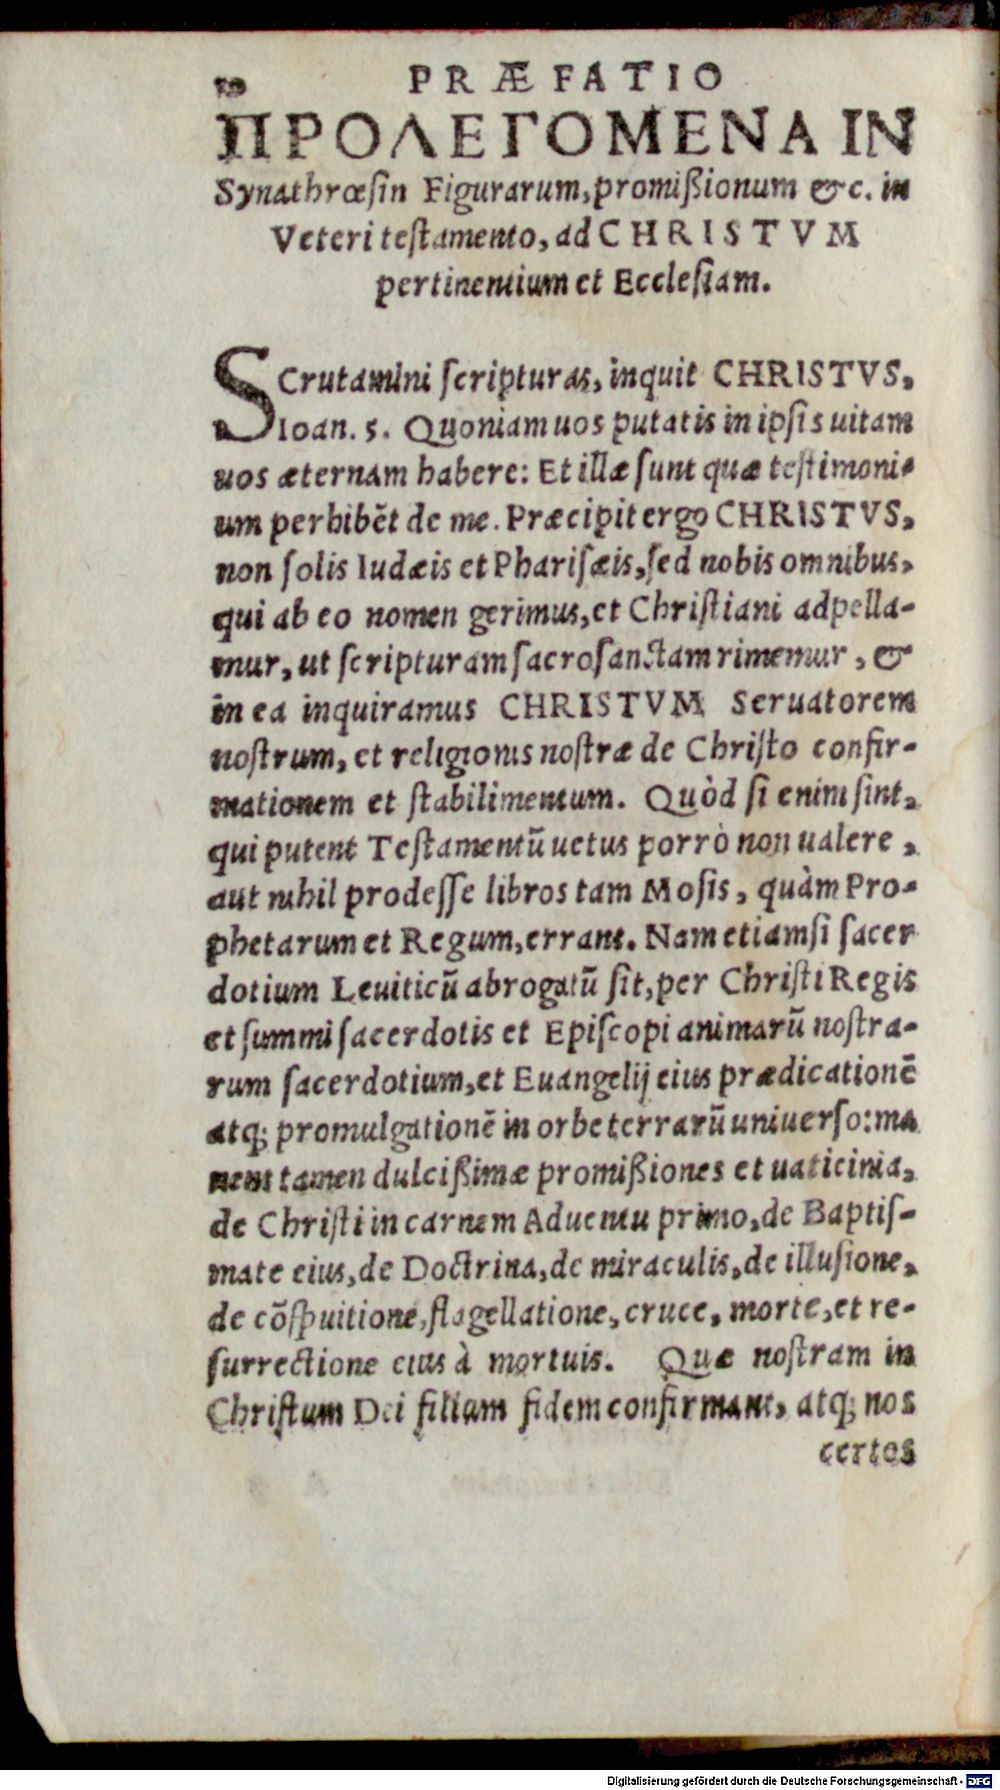 PRÆFATIO
ΠΡΟΛΕΓΟΜΕΝΑ IN
Synathrœſin Figurarum, promißionum &c. in
Veteri teſtamento, ad CHRISTVM
pertinentium et Eccleſiam.
SCrutamini ſcripturas, inquit CHRISTVS,
Ioan. 5. Quoniam uos putatis in ipſis uitam
uos æternam habere: Et illæ ſunt quæ teſtimoni-
um perhibēt de me. Præcipit ergo CHRISTVS,
non ſolis Iudæis et Phariſæis, ſed nobis omnibus,
qui ab eo nomen gerimus, et Chriſtiani adpella-
mur, ut ſcripturam ſacroſanctam rimemur, &
in ea inquiramus CHRISTVM Seruatorem
noſtrum, et religionis noſtræ de Chriſto confir-
mationem et ſtabilimentum. Quòd ſi enim ſint,
qui putent Teſtamentū uetus porrò non ualere,
aut nihil prodeſſe libros tam Moſis, quàm Pro-
phetarum et Regum, errant. Nam etiamſi ſacer
dotium Leuiticū abrogatū ſit, per Chriſti Regis
et ſummi ſacerdotis et Epiſcopi animarū noſtra-
rum ſacerdotium, et Euangelij eius prædicationē
atq; promulgationē in orbe terrarū uniuerſo: ma
nent tamen dulcißimæ promißiones et uaticinia,
de Chriſti in carnem Aduentu primo, de Baptiſ-
mate eius, de Doctrina, de miraculis, de illuſione,
de cōſpuitione, flagellatione, cruce, morte, et re-
ſurrectione eius à mortuis. Quæ noſtram in
Chriſtum Dei filium fidem confirmant, atq; nos
certos
Digitalisierung gefördert durch die Deutsche Forschungsgemeinschaft - DFG